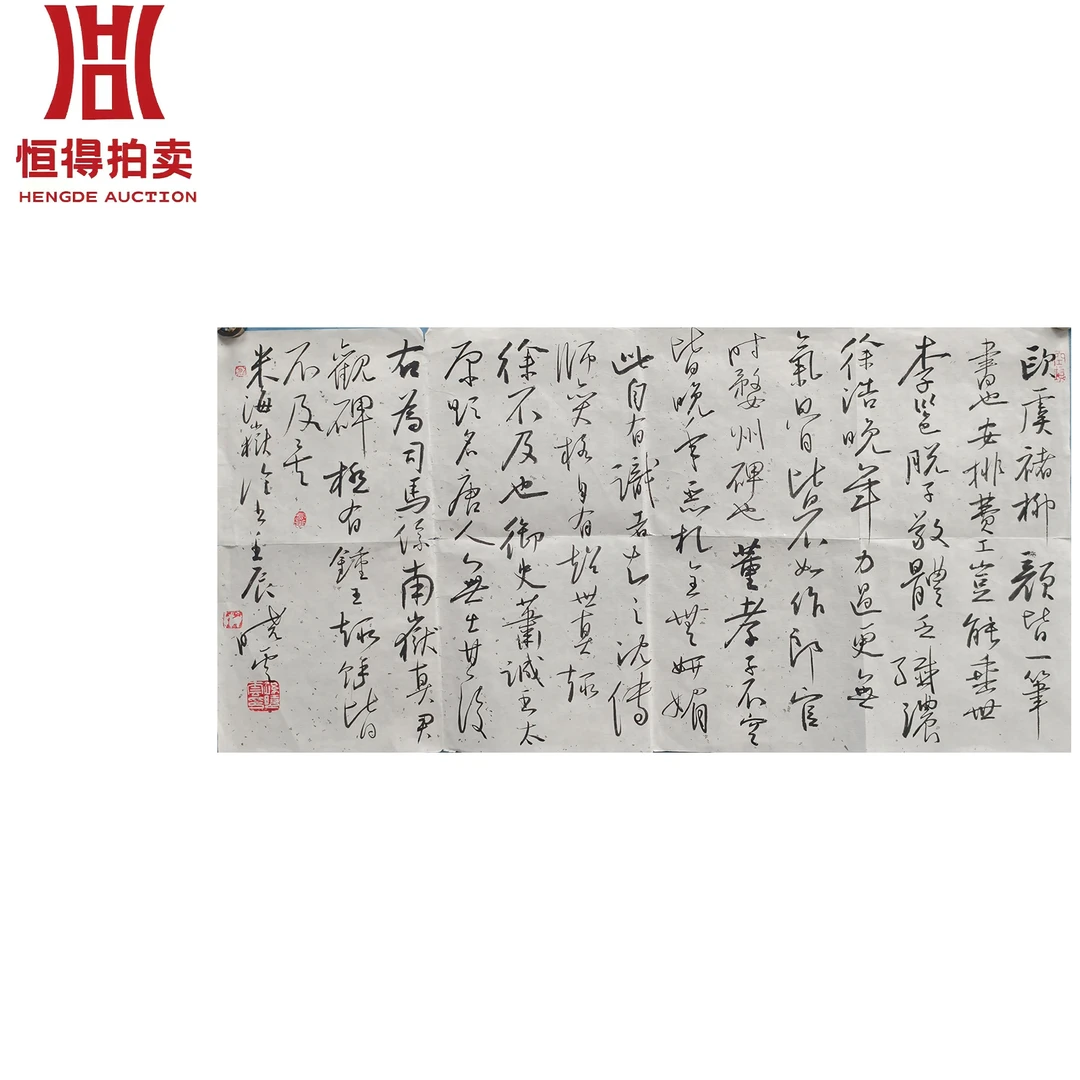 恒得拍卖
HENGDE AUCTION
歐虞褚柳顏皆一筆
書也安排費工豈能垂世
李邕脫子敬體乏纖濃
徐浩晚年力過更無
氣骨皆不如作郎官
時婺州碑也董孝子不空
皆晚年惡札全無妍媚
此自有識者知之沈傳
師變格自有超世真趣
徐不及也御史蕭誠書太
原題名唐人無出其
右為司馬係南嶽真君
觀碑極有鍾王趣餘皆
不及矣
米海嶽論書壬辰曉雲